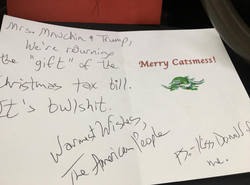 Mrs. Mnuchin & Trump,
We're returning
the "gift" of the
Christmas tax bill.
It's bullshit.
Warmest Wishes,
The American People
Merry Catsmess!
P.S.-Kiss Donald
me.